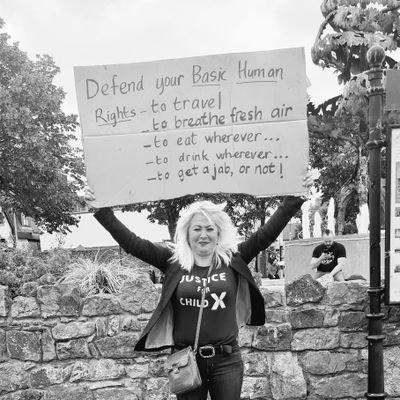 Defend your Basic Human
Rights - to travel
- to breathe fresh air
- to eat wherever...
- to drink wherever...
- to get a jab, or not!
JUSTICE
FOR
CHILD X